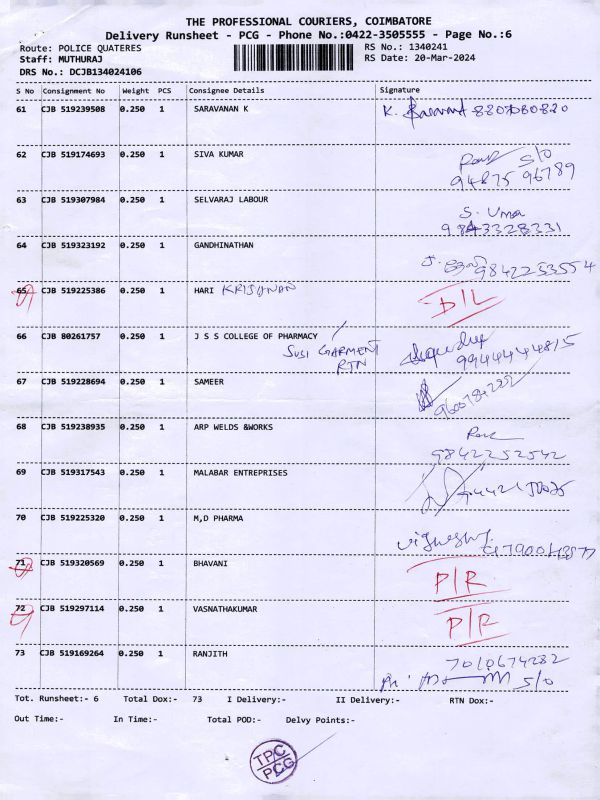 THE PROFESSIONAL COURIERS, COIMBATORE
Delivery Runsheet - PCG - Phone No.:0422-3505555 - Page No.:6
Route: POLICE QUATERES RS No.: 1340241
Staff: MUTHURAJ RS Date: 20-Mar-2024
DRS No.: DCJB134024106
S No Consignment No Weight PCS Consignee Details Signature
61 CJB 519239508 0.250 1 SARAVANAN K K.
62 CJB 519174693 0.250 1 SIVA KUMAR S/O
94875 96789
63 CJB 519307984 0.250 1 SELVARAJ LABOUR S. Uma
9843328331
64 CJB 519323192 0.250 1 GANDHINATHAN 9842253554
65 CJB 519225386 0.250 1 HARI KRISHNAN D/L
66 CJB 80261757 0.250 1 J S S COLLEGE OF PHARMACY
SUSI GARMENT
RTN
67 CJB 519228694 0.250 1 SAMEER
68 CJB 519238935 0.250 1 ARP WELDS &WORKS
9842252542
69 CJB 519317543 0.250 1 MALABAR ENTREPRISES
70 CJB 519225320 0.250 1 M,D PHARMA
71 CJB 519320569 0.250 1 BHAVANI P/R
72 CJB 519297114 0.250 1 VASNATHAKUMAR P/R
73 CJB 519169264 0.250 1 RANJITH 7010674282
S/O
Tot. Runsheet:- 6 Total Dox:- 73 I Delivery:- II Delivery:- RTN Dox:-
Out Time:- In Time:- Total POD:- Delvy Points:-
TPC
PCG